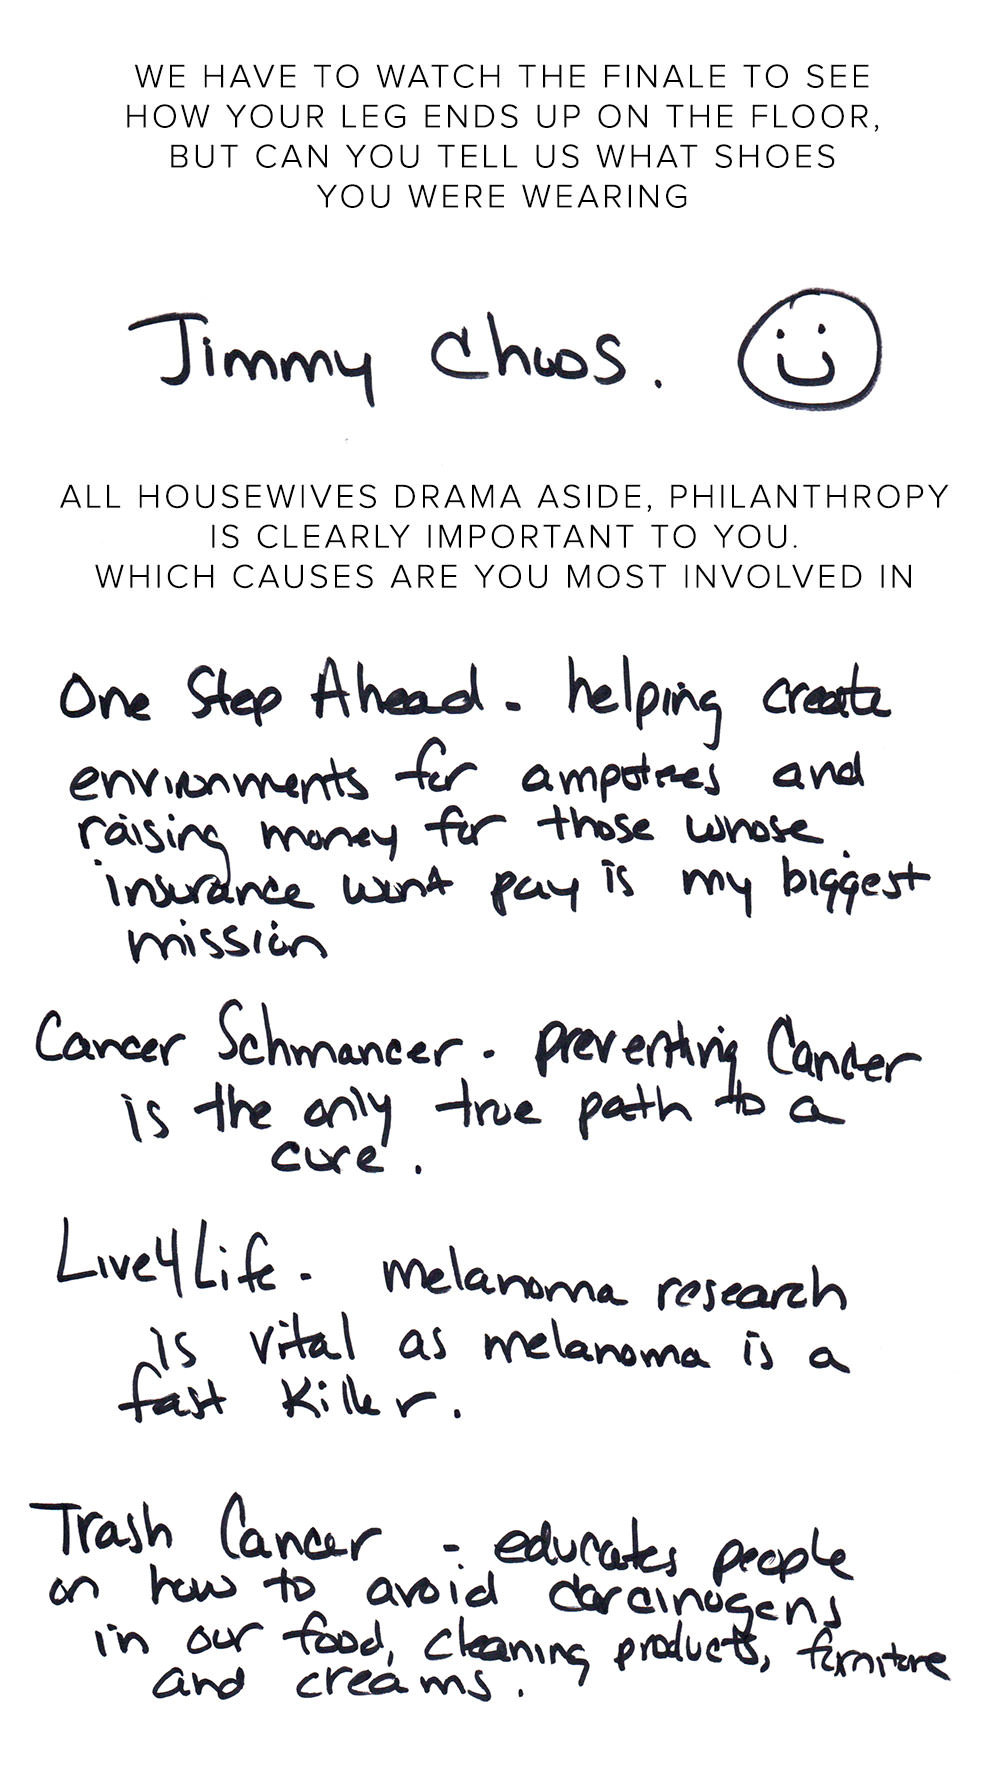 WE HAVE TO WATCH THE FINALE TO SEE
HOW YOUR LEG ENDS UP ON THE FLOOR,
BUT CAN YOU TELL US WHAT SHOES
YOU WERE WEARING
Jimmy Choos.
ALL HOUSEWIVES DRAMA ASIDE, PHILANTHROPY
IS CLEARLY IMPORTANT TO YOU.
WHICH CAUSES ARE YOU MOST INVOLVED IN
One Step Ahead - helping create
environments for amputees and
raising money for those whose
insurance wont pay is my biggest
mission
Cancer Schmancer - preventing Cancer
is the only true path to a
cure.
Live4Life - melanoma research
is vital as melanoma is a
fast killer.
Trash Cancer - educates people
on how to avoid carcinogens
in our food, cleaning products, furniture
and creams.